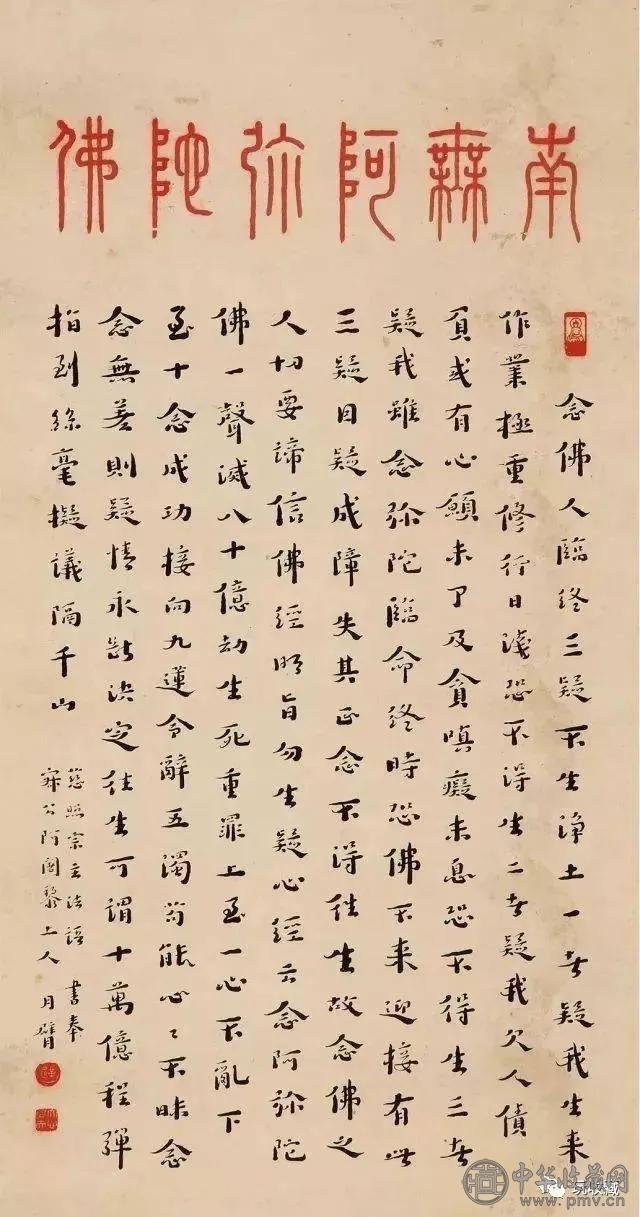 南無阿弥陀佛
念佛人臨終三疑不生淨土一者疑我生来
作業極重修行日淺恐不得生二者疑我欠人債
負或有心願未了及貪嗔癡未息恐不得生三者
疑我雖念弥陀臨命終時恐佛不来迎接有此
三疑因疑成障失其正念不得往生故念佛之
人切要諦信佛經明旨勿生疑心經云念阿弥陀
佛一聲滅八十億劫生死重罪上至一心不亂下
至十念成功接向九蓮令辭五濁苟能心々不昧念
念無差則疑情永斷決定往生可謂十萬億程彈
指到絲毫擬議隔千山
慈照宗主法語 書奉
寂公阿闍黎上人 月臂
中华收藏网
www.pmv.cn